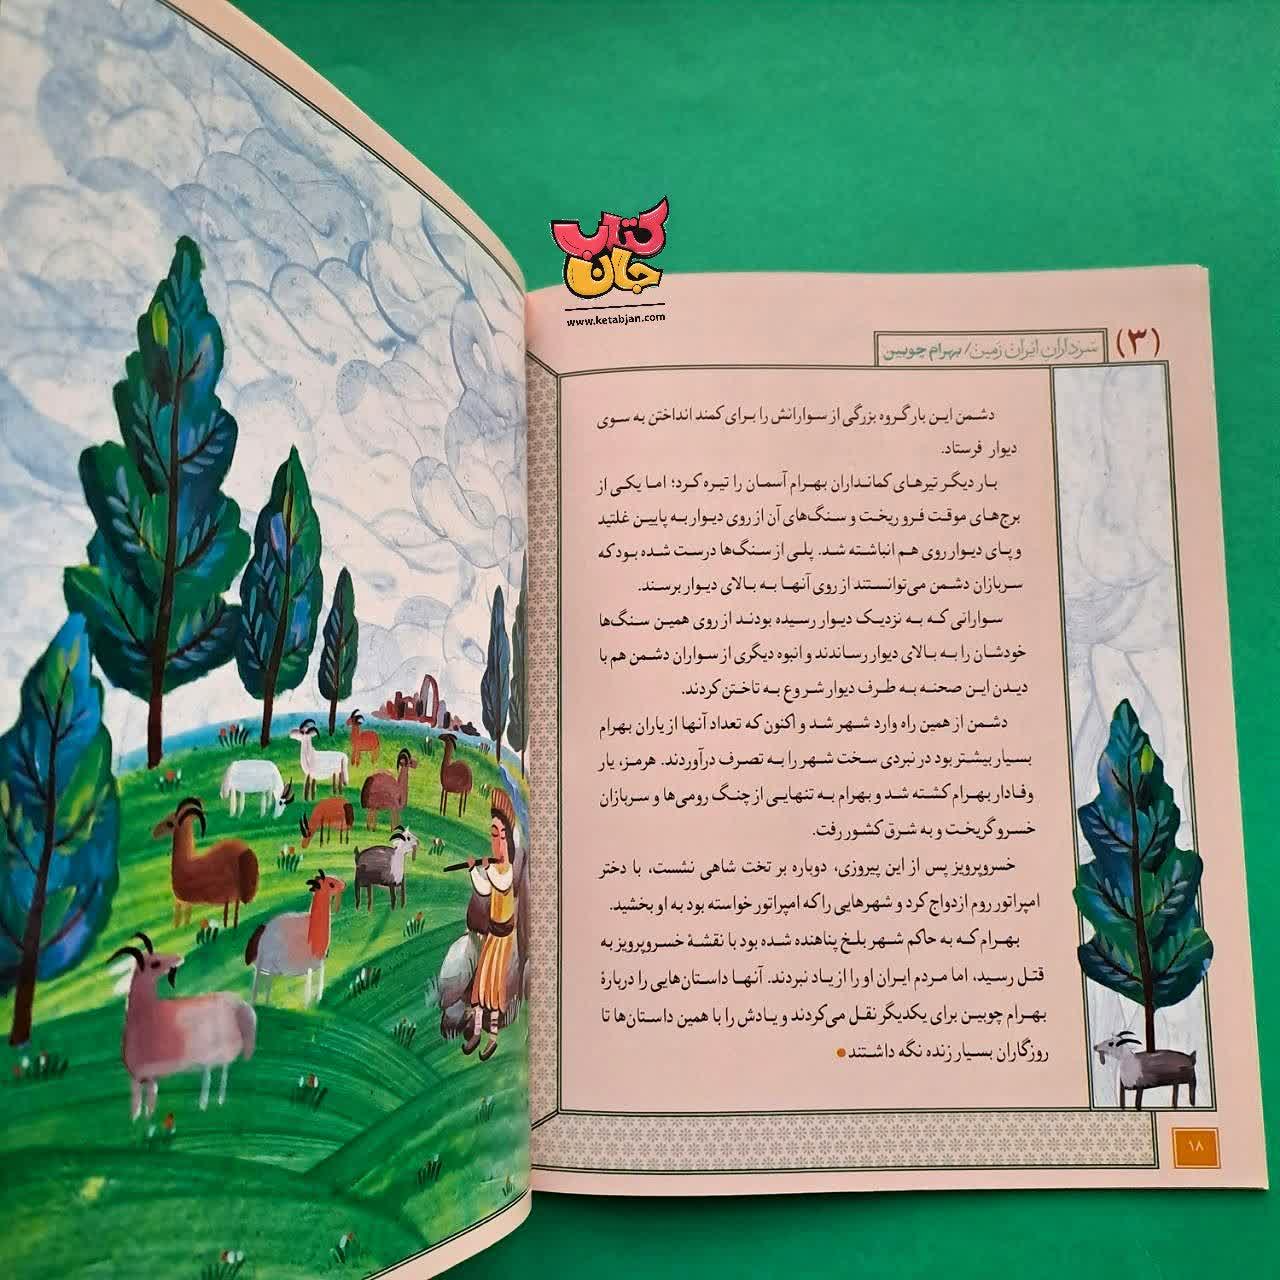 کتاب
جان
www.ketabjan.com
(۳)
سرداران ایران زمین/ بهرام چوبین
دشمن این بار گروه بزرگی از سوارانش را برای کمند انداختن به سوی
دیوار فرستاد.
بار دیگر تیرهای کمانداران بهرام آسمان را تیره کرد؛ اما یکی از
برج‌های موقت فرو ریخت و سنگ‌های آن از روی دیوار به پایین غلتید
و پای دیوار روی هم انباشته شد. پلی از سنگ‌ها درست شده بود که
سربازان دشمن می‌توانستند از روی آنها به بالای دیوار برسند.
سوارانی که به نزدیک دیوار رسیده بودند از روی همین سنگ‌ها
خودشان را به بالای دیوار رساندند و انبوه دیگری از سواران دشمن هم با
دیدن این صحنه به طرف دیوار شروع به تاختن کردند.
دشمن از همین راه وارد شهر شد و اکنون که تعداد آنها از یاران بهرام
بسیار بیشتر بود در نبردی سخت شهر را به تصرف درآوردند. هرمز، یار
وفادار بهرام کشته شد و بهرام به تنهایی از چنگ رومی‌ها و سربازان
خسرو گریخت و به شرق کشور رفت.
خسروپرویز پس از این پیروزی، دوباره بر تخت شاهی نشست، با دختر
امپراتور روم ازدواج کرد و شهرهایی را که امپراتور خواسته بود به او بخشید.
بهرام که به حاکم شهر بلخ پناهنده شده بود با نقشهٔ خسروپرویز به
قتل رسید، اما مردم ایران او را از یاد نبردند. آنها داستان‌هایی را دربارهٔ
بهرام چوبین برای یکدیگر نقل می‌کردند و یادش را با همین داستان‌ها تا
روزگاران بسیار زنده نگه داشتند
۱۸